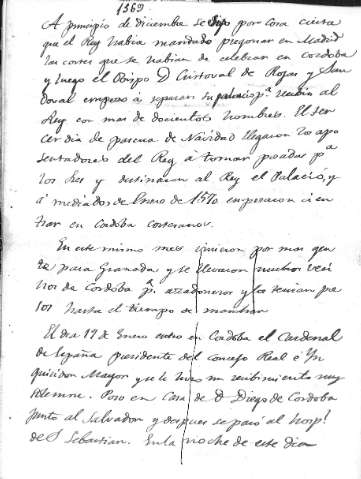 1569
A principio de diciembre se dijo por cosa cierta
que el Rey habia mandado pregonar en Madrid
las cortes que se habian de celebrar en Cordoba
y luego el Obispo D Cristoval de Rojas y San
doval empezo á reparar su palacio pª recibir al
Rey con mas de doscientos hombres. El ter
cer dia de pascua de Navidad llegaron los apo
sentadores del Rey á tomar posadas pª
los Ses y destinaron al Rey el Palacio, y
á mediados de Enero de 1570 empezaron á en
trar en Cordoba cortesanos.
En este mismo mes vinieron por mas gen
te para Granada y se llevaron muchos veci
nos de Cordoba pª azadoneros y los tenian pre
sos hasta el tiempo de marchar
El dia 19 de Enero entro en Cordoba el Cardenal
de España presidente del Consejo Real é In
quisidor Mayor y se le hizo un recibimiento muy
solemne. Poso en Casa de D Diego de Cordoba
junto al Salvador y despues se pasó al hospl
de S Sebastian. En la noche de este dia